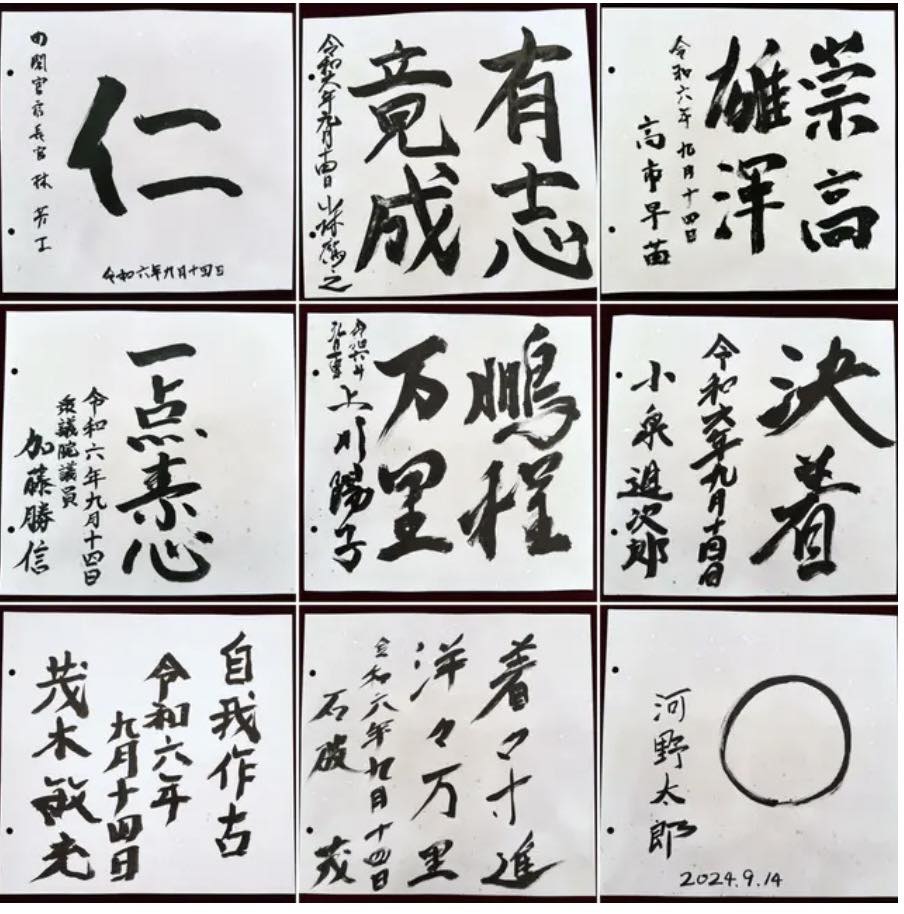 仁
内閣官房長官 林 芳正
令和六年九月十四日
有志
竟成
令和六年九月十四日 小林鷹之
崇高
雄渾
令和六年 九月十四日
高市早苗
一点素心
令和六年九月十四日
衆議院議員
加藤勝信
鵬程
万里
令和六年
上川陽子
決着
令和六年九月十四日
小泉進次郎
自我作古
令和六年
九月十四日
茂木敏充
着々寸進
洋々万里
令和六年九月十四日
石破 茂
河野太郎
2024.9.14